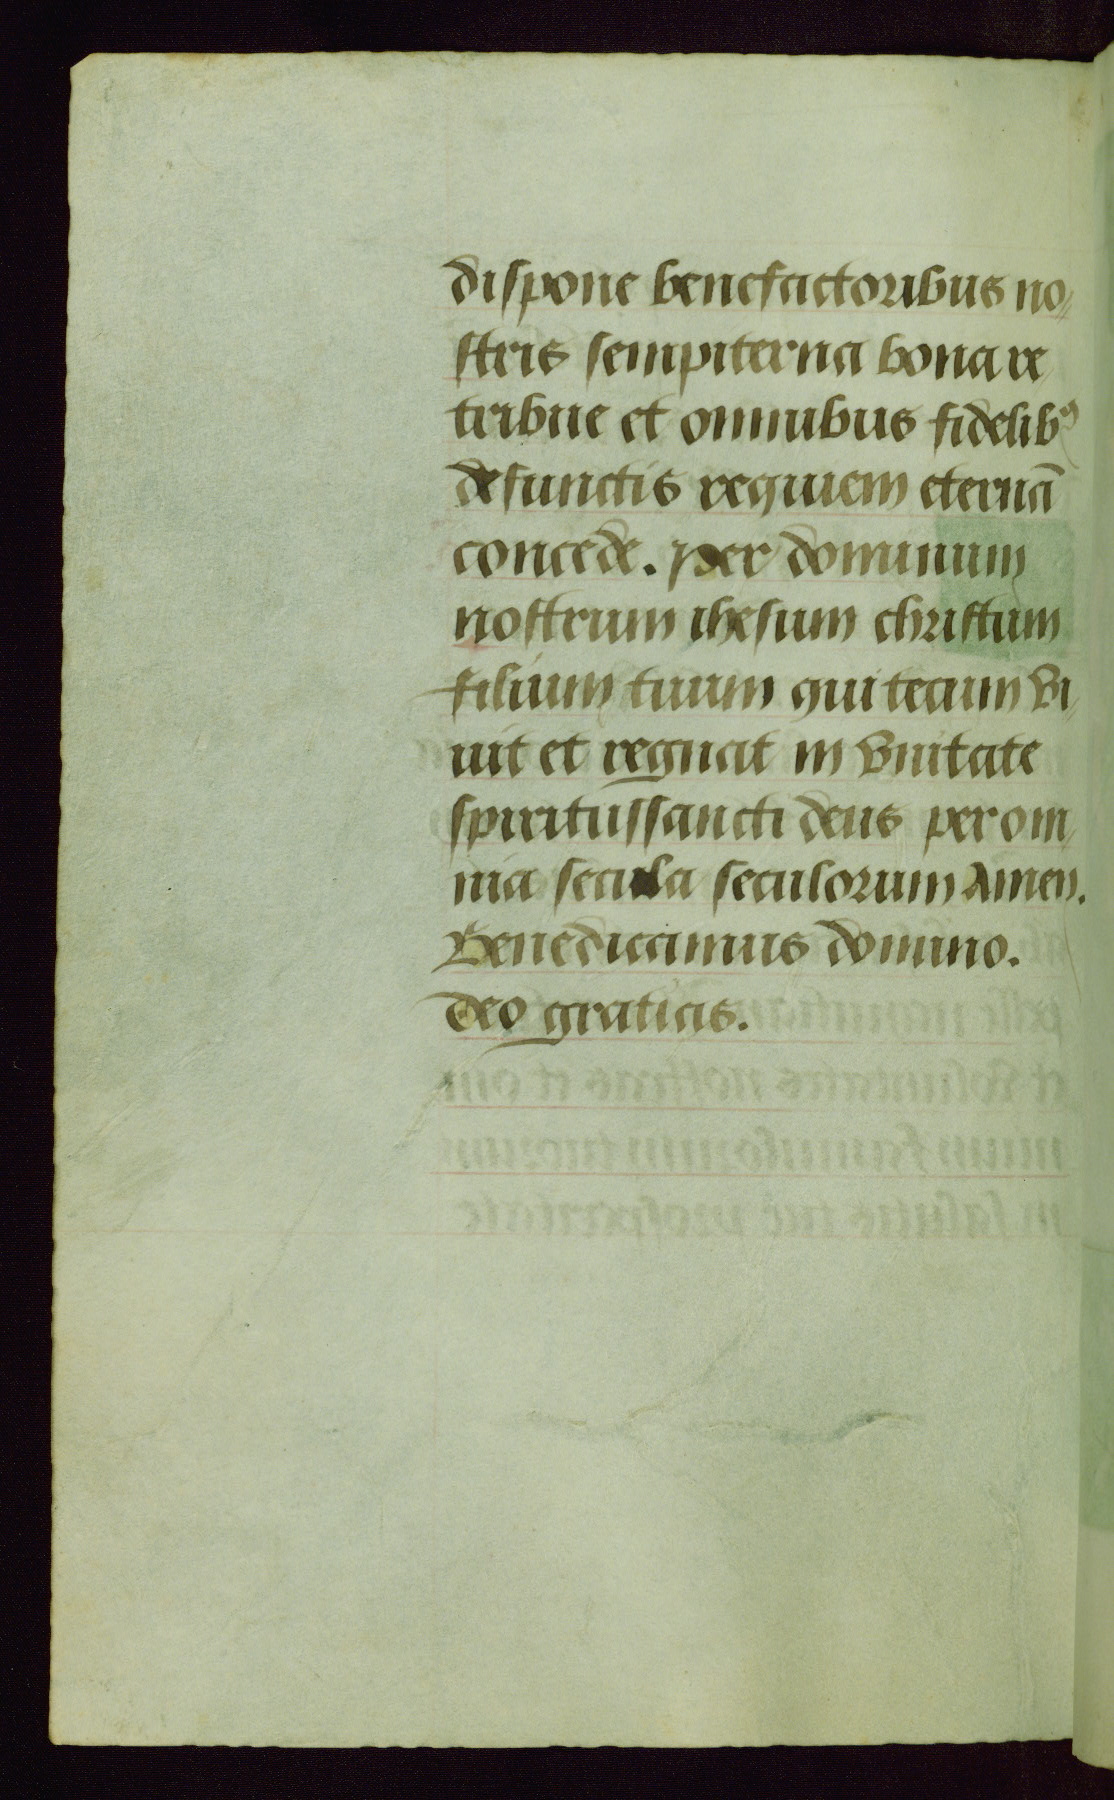 dispone benefactoribus no
stris sempiterna bona re
tribue et omnibus fidelibꝰ
defunctis requiem eternā
concede. Per dominum
nostrum ihesum christum
filium tuum qui tecum vi
uit et regnat in vnitate
spiritussancti deus per om
nia secula seculorum Amen.
Benedicamus domino.
deo gratias.